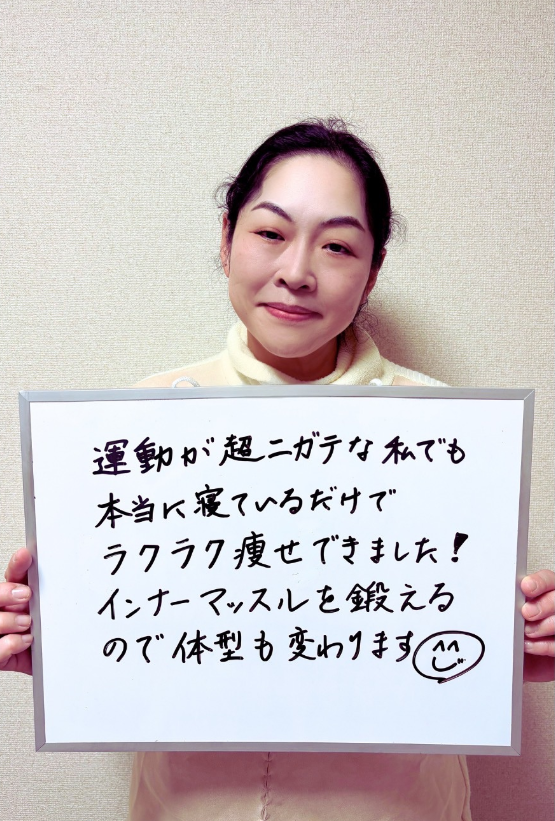 運動が超ニガテな私でも
本当に寝ているだけで
ラクラク痩せできました!
インナーマッスルを鍛える
ので体型も変わります